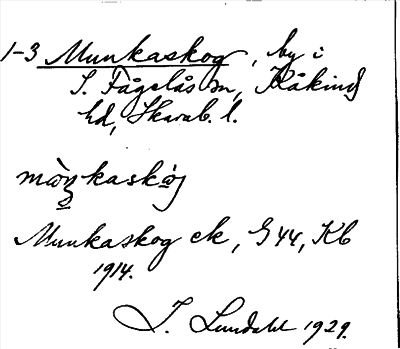 1-3 Munkaskog, by i
S. Fågelås sn, Kåkinds
hd, Skarab. l.
Munkaskog ek, G 44, Kb
1914.
I. Lundahl 1929.